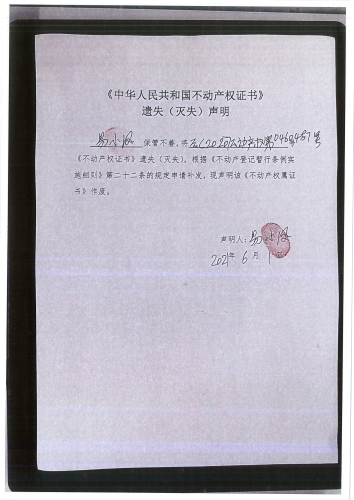 《中华人民共和国不动产权证书》
遗失（灭失）声明
易小 保管不善，将 (2020) 第0464487号
《不动产权证书》遗失（灭失），根据《不动产登记暂行条例实
施细则》第二十二条的规定申请补发，现声明该《不动产权属证
书》作废。
声明人：易小
2021年6月1日